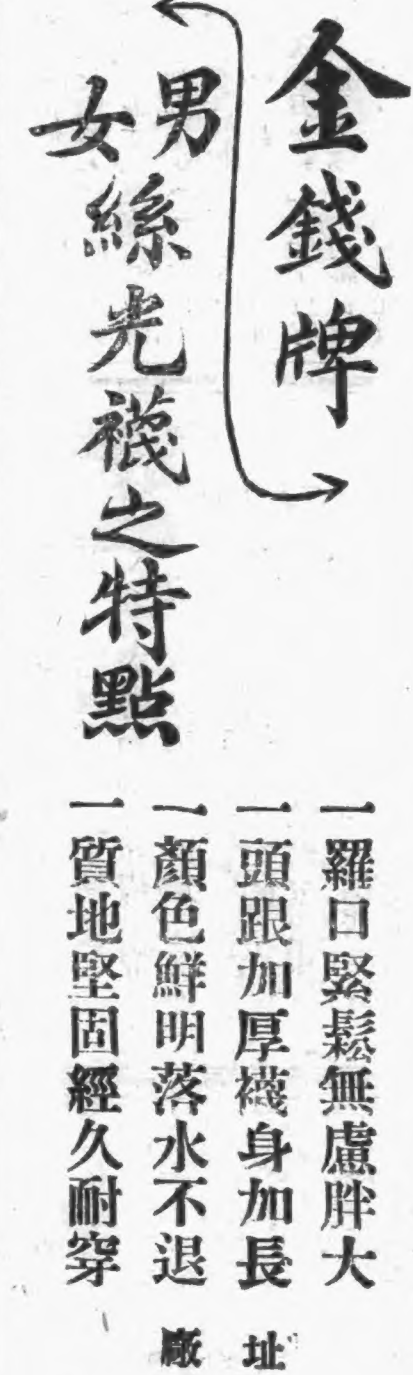 金錢牌
男女絲光襪之特點
一羅口緊鬆無慮胖大
一頭跟加厚襪身加長
一顏色鮮明落水不退
一質地堅固經久耐穿
址
廠